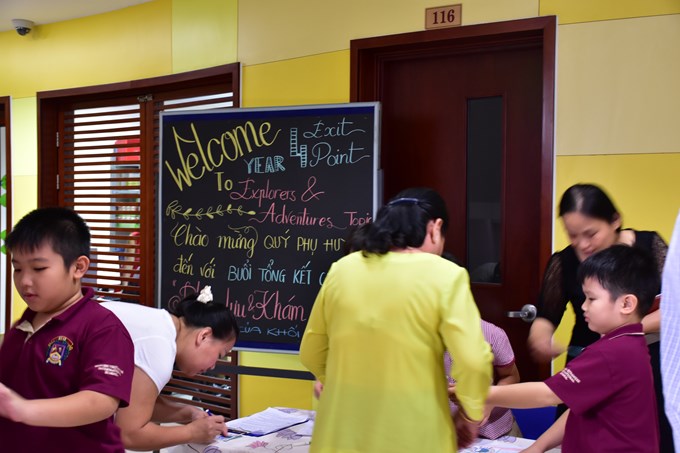 116
Welcome YEAR 4 Exit Point
To Explorers &
Adventures Topic
Chào mừng QUÝ PHỤ HU
đến với BUỔI TỔNG KẾT C
lưu & Khám
CỦA KHỐI